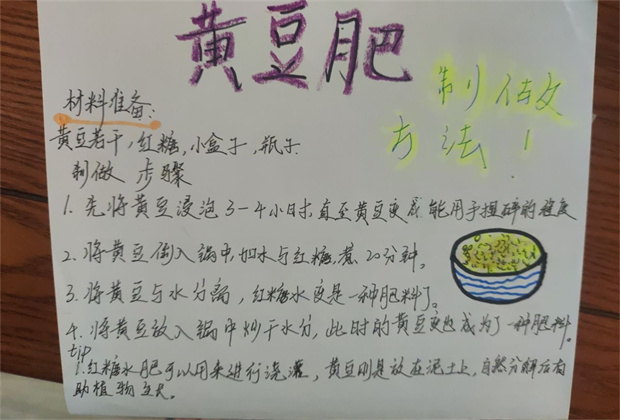 黄豆肥
制做
方法1
材料准备:
黄豆若干,红糖,小盒子,瓶子
制做 步骤
1.先将黄豆浸泡3-4小时,直至黄豆变成能用手捏碎的程度
2.将黄豆倒入锅中,加水与红糖,煮20分钟。
3.将黄豆与水分离,红糖水便是一种肥料了。
4.将黄豆放入锅中炒干水分,此时的黄豆便也成为了一种肥料。
tip
1.红糖水肥可以用来进行浇灌,黄豆则是放在泥土上,自然分解后有
助植物生长